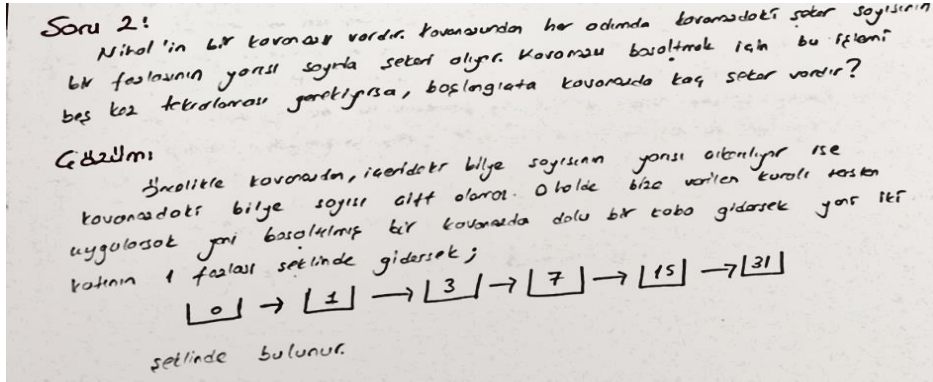 Soru 2:
Nihal'in bir kavanozu vardır. Kavanozundan her adımda kavanozdaki şeker sayısının
bir fazlasının yarısı sayıda şekeri alıyor. Kavanozu boşaltmak için bu işlemi
beş kez tekrarlaması gerekiyorsa, başlangıçta kavanozda kaç şeker vardır?
Çözüm:
Öncelikle kavanozdan, içerideki bilye sayısının yarısı alınıyor ise
kavanozdaki bilye sayısı çift olamaz. O halde bize verilen kuralı tersten
uygularsak yani boşaltılmış bir kavanozda dolu bir kaba gidersek yani iki
katının 1 fazlası şeklinde gidersek;
0 → 1 → 3 → 7 → 15 → 31
şeklinde bulunur.